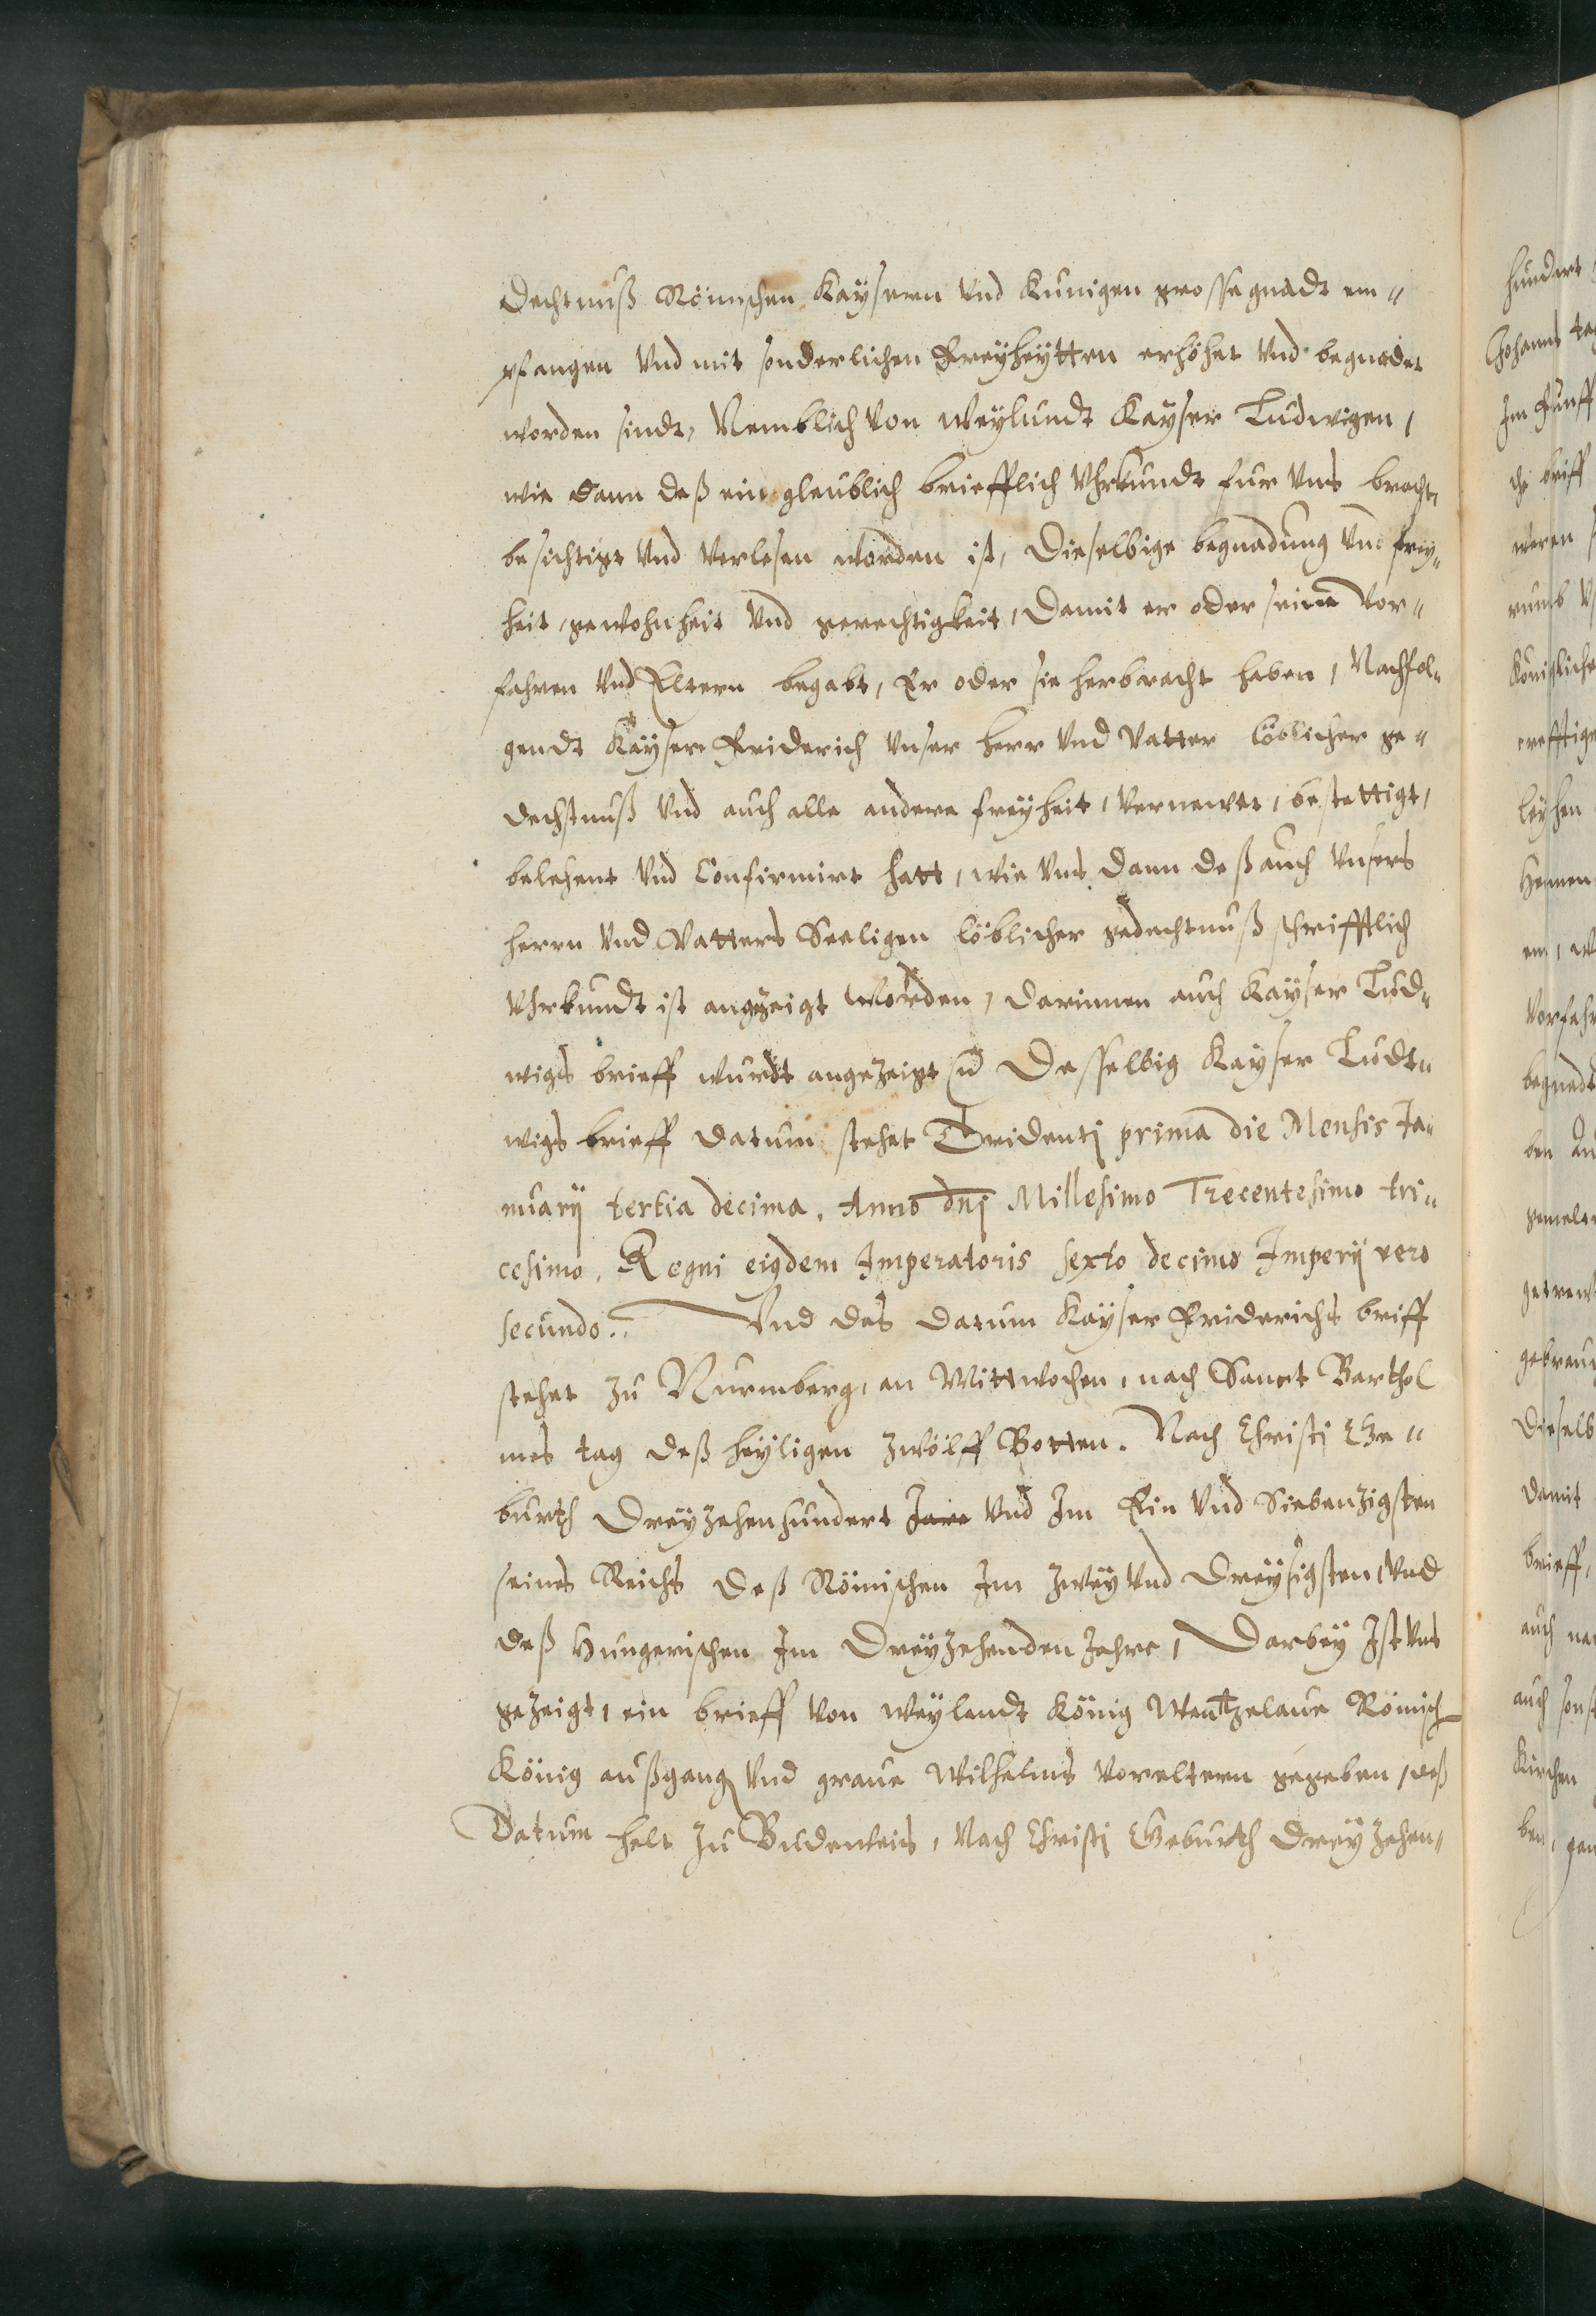 dechtnuß Römischen Kaysern vnd Kunigen grosse gnadt em-
pfangen vnd mit sonderlichen Freyheytten erhöhet vnd begnadet
worden sindt, Nemblich von weylundt Kayser Ludwigen,
wie dann deß ein glaublich briefflich vhrkundt fur vns bracht,
besichtigt vnd verlesen worden ist, dieselbige begnadung vnd frey-
heit, gewohnheit vnd gerechtigkeit, Damit er oder seine Vor-
fahren vnd Eltern begabt, Er oder sie herbracht haben, Nachfol-
gendt Kayser Friderich vnser herr vnd Vatter löblicher ge-
dechtnuß vnd auch alle andere freyheit, vernewet, bestettigt,
belehent vnd Confirmirt hatt, wie vns dann deß auch vnsers
herrn vnd Vatters Seeligen löblicher gedechtnuß schrifftlich
vhrkundt ist angezeigt worden, darinnen auch Kayser Lud-
wigs brieff wurdt angezeigt Desselbig Kayser Ludt-
wigs brieff datum stehet Tridentj prima die Mensis Ja-
nuarij tertia decima. Anno dnj Millesimo Trecentesimo tri-
cesimo. Regni eiqdem Imperatoris sexto decimo Imperij vero
secundo. Vnd das datum Kayser Friderichs briff
stehet zu Nurmberg, an Mittwochen, nach Sanct Barthol
mes tag deß heyligen zwölff Botten. Nach Christj Ge-
burth Dreyzehenhundert Jare vnd Im Ein vnd Siebenzigsten
seines Reichs deß Römischen Im zwey vnd Dreysigsten, vnd
deß Hungerischen Im Dreyzehenden Jahre, Darbey Ist vns
gezeigt, ein brieff von weylendt König Wentzelaue Römisch
König außgang vnd graue Wilhelms Voreltern gegeben, deß
Datum helt zu Budenleis, Nach Christj Geburth Dreyzehen-
hundert
Johanns tag
Im Funff
brieff
weren
leyhen
Vorfahr
begnadt
ben
damit
brieff,
auch
auch sonst
Kirchen
ben,